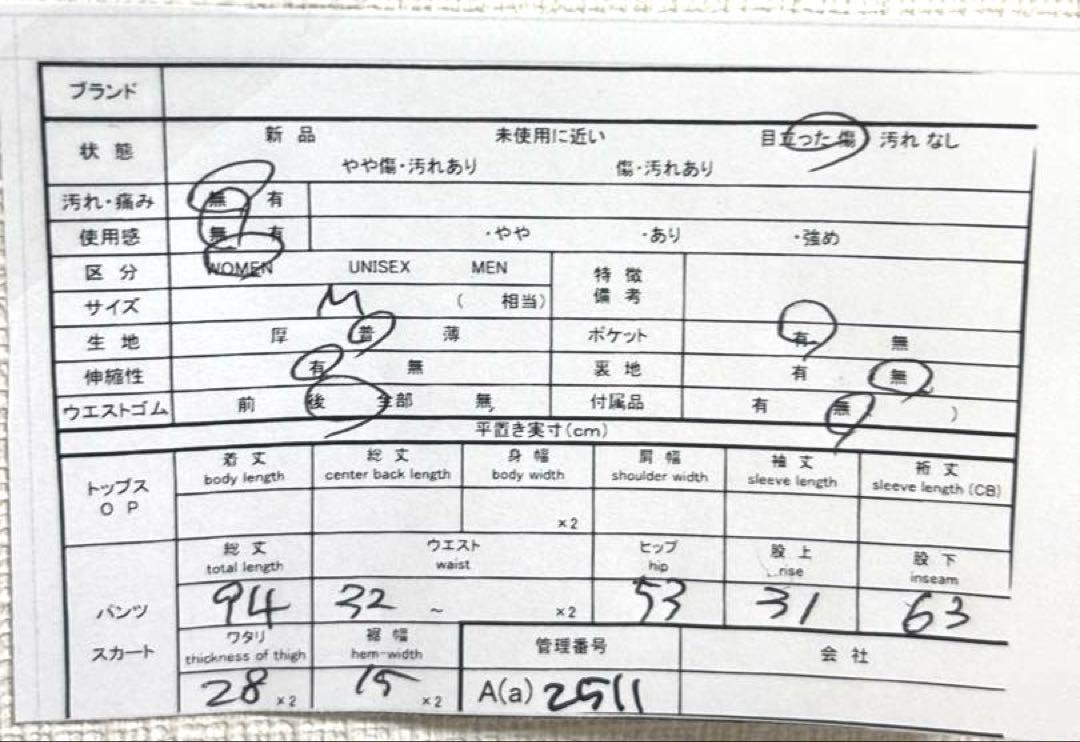 ブランド
状態 新品 未使用に近い 目立った傷 汚れなし
やや傷・汚れあり 傷・汚れあり
汚れ・痛み 無 有
使用感 無 有 ・やや ・あり ・強め
区分 WOMEN UNISEX MEN 特徴
備考
サイズ M ( 相当)
生地 厚 普 薄 ポケット 有 無
伸縮性 有 無 裏地 有 無
ウエストゴム 前 後 全部 無 付属品 有 無 )
平置き実寸(cm)
トップス
OP
着丈 総丈 身幅 肩幅 袖丈 裄丈
body length center back length body width shoulder width sleeve length sleeve length (CB)
×2
パンツ
スカート
総丈 ウエスト ヒップ 股上 股下
total length waist hip rise inseam
94 32 ~ ×2 53 31 63
ワタリ 裾幅 管理番号 会社
thickness of thigh hem-width
28 ×2 15 ×2 A(a) 2511